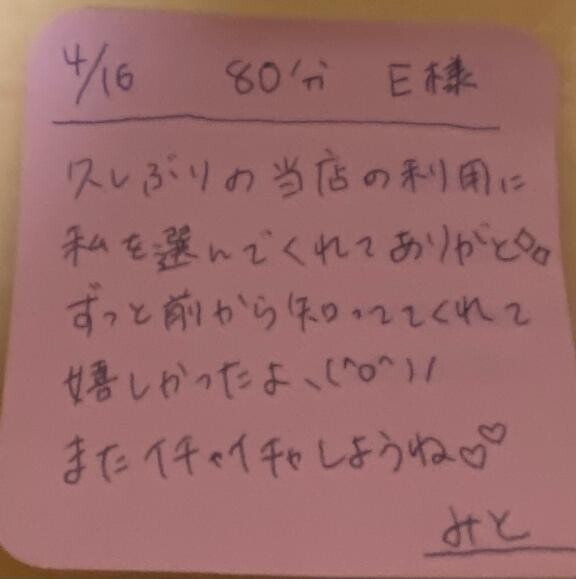 4/16 80分 E様
久しぶりの当店の利用に
私を選んでくれてありがと◇◇
ずっと前から知っててくれて
嬉しかったよ、(^o^)/
またイチャイチャしようね♡♡
みと